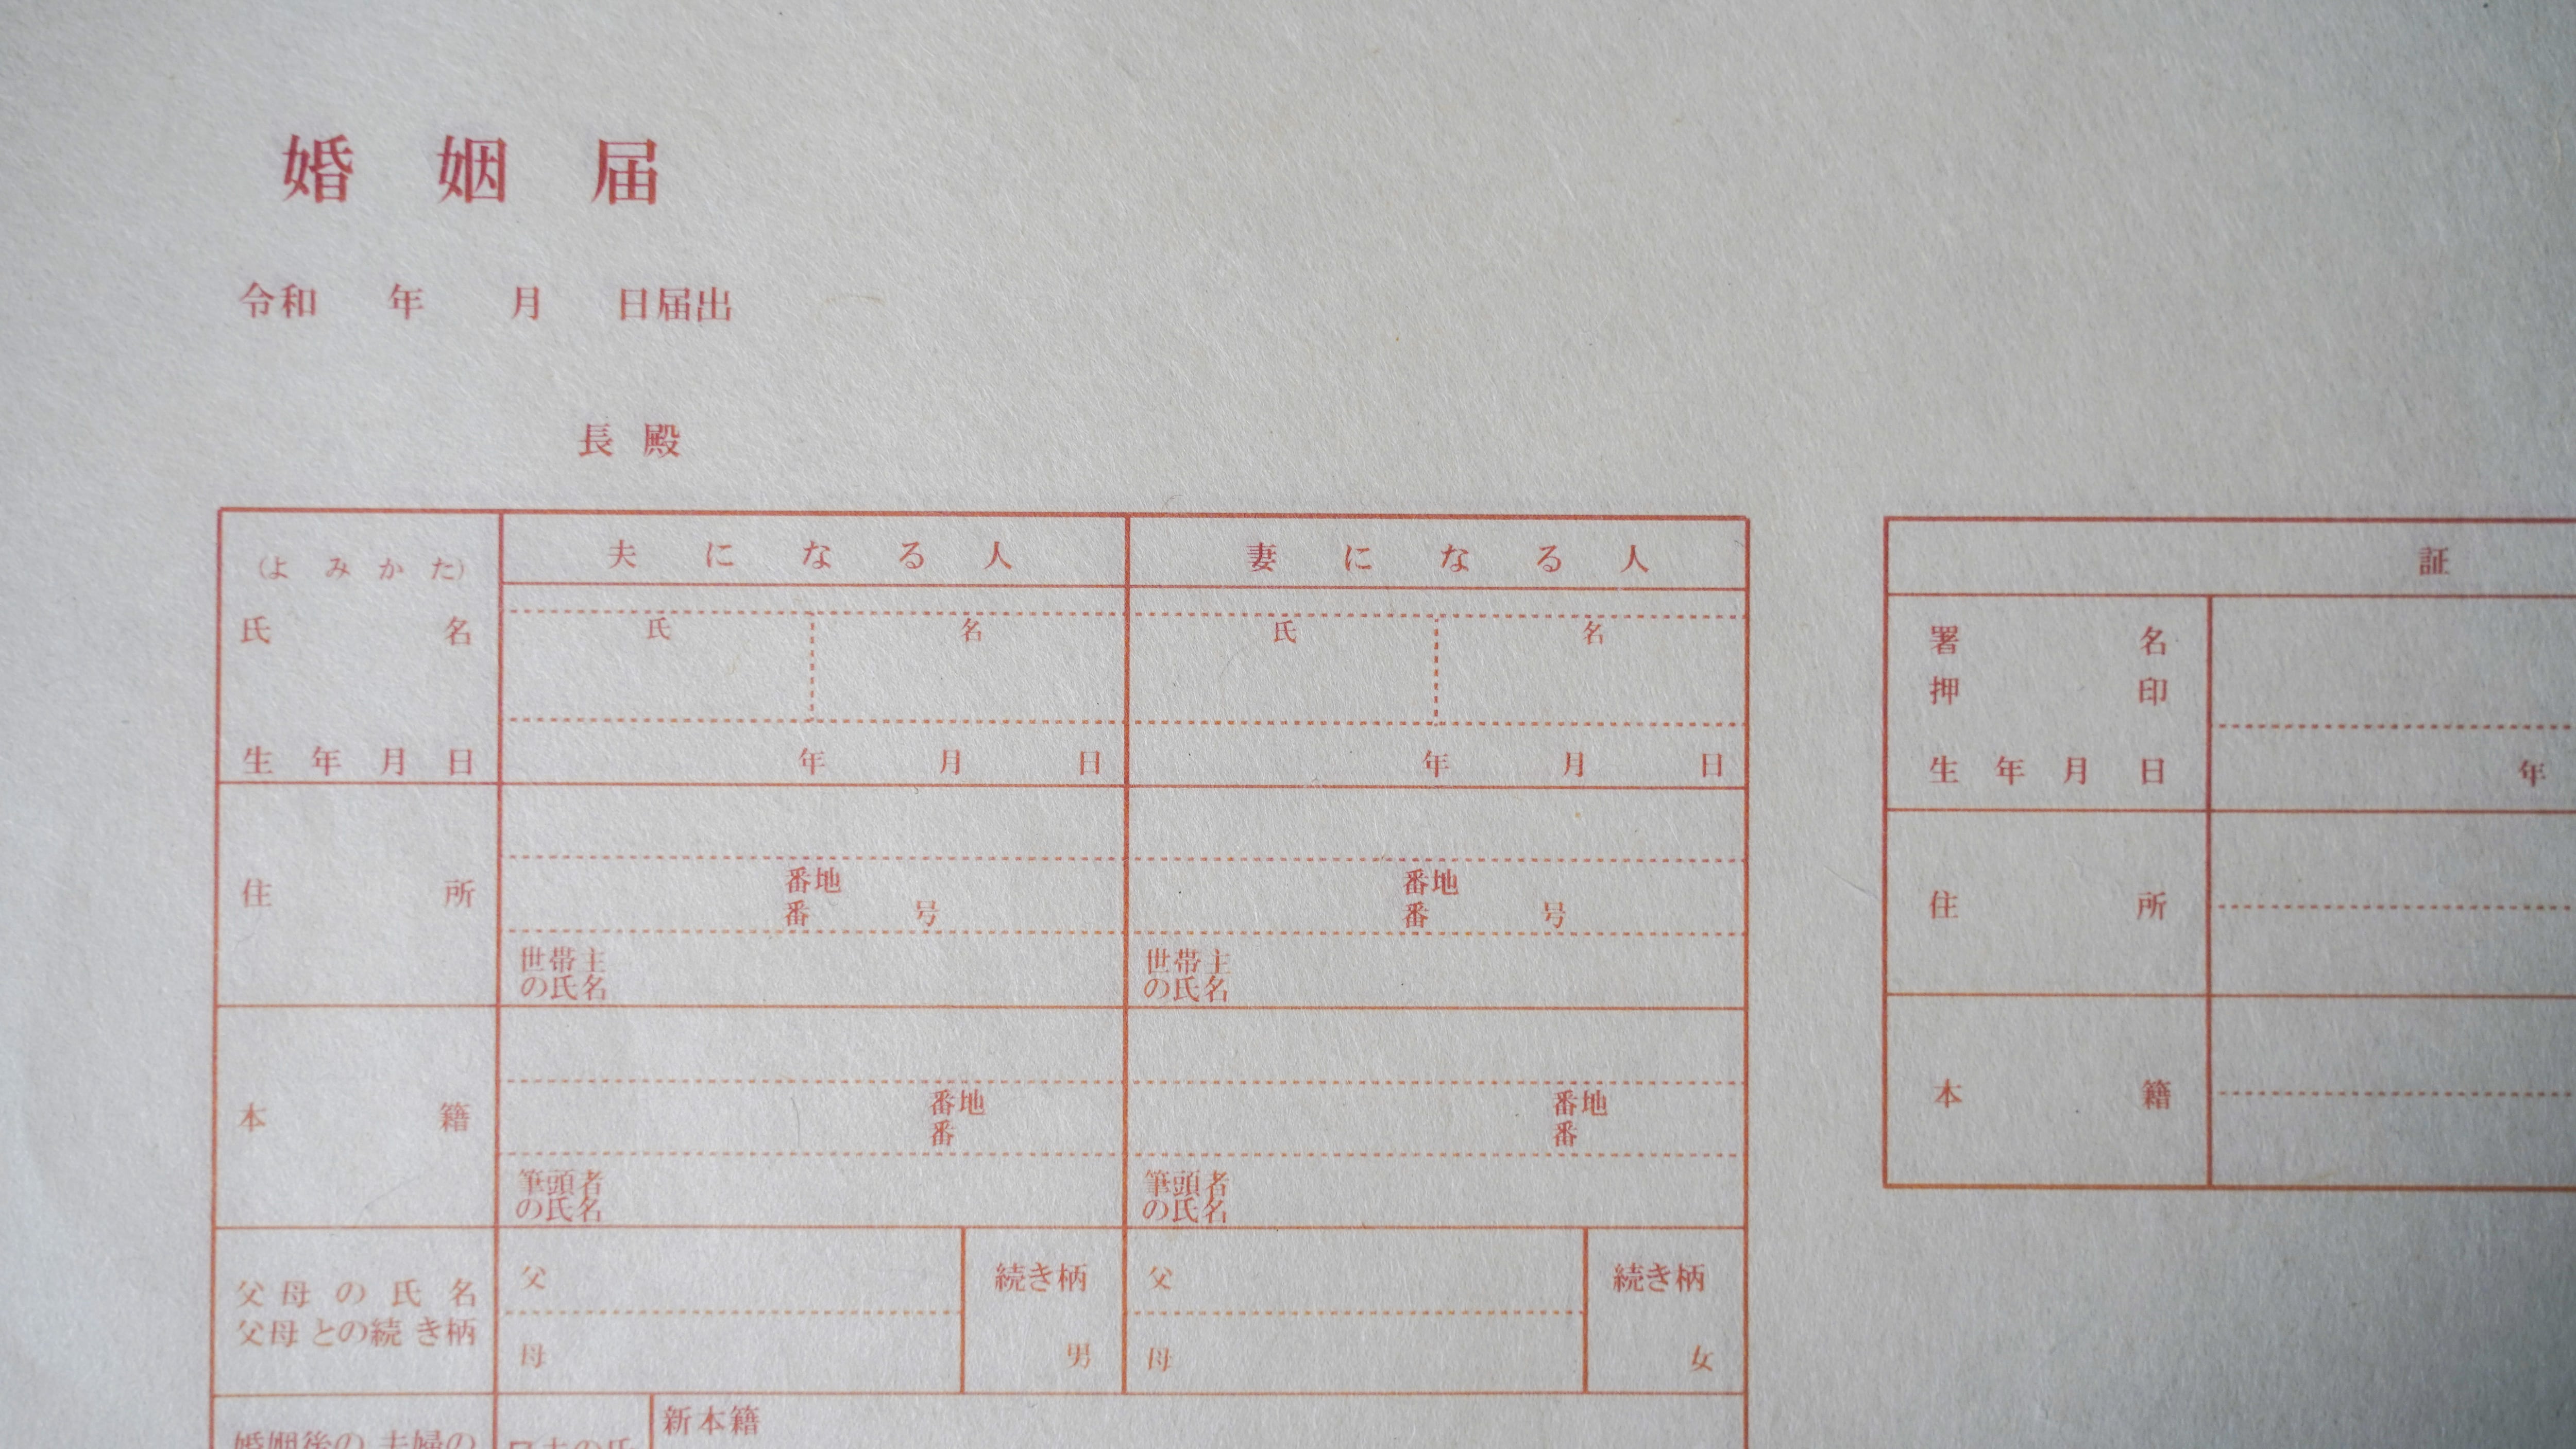 婚姻届
令和 年 月 日届出
長 殿
(よみかた)
夫になる人
妻になる人
氏名
氏 名
氏 名
生年月日
年 月 日
年 月 日
住所
番地
番 号
世帯主
の氏名
番地
番 号
世帯主
の氏名
本籍
番地
番
筆頭者
の氏名
番地
番
筆頭者
の氏名
父母の氏名
父母との続き柄
父
母
続き柄
男
父
母
続き柄
女
婚姻後の夫婦の
新本籍
証
署名
押印
生年月日
年
住所
本籍